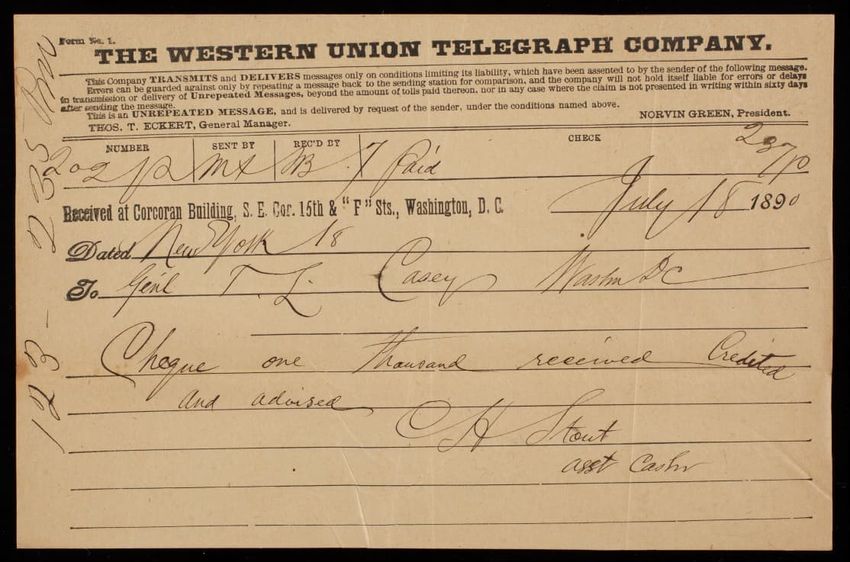 Form No. 1.
THE WESTERN UNION TELEGRAPH COMPANY.
This Company TRANSMITS and DELIVERS messages only on conditions limiting its liability, which have been assented to by the sender of the following message.
Errors can be guarded against only by repeating a message back to the sending station for comparison, and the company will not hold itself liable for errors or delays
in transmission or delivery of Unrepeated Messages, beyond the amount of tolls paid thereon, nor in any case where the claim is not presented in writing within sixty days
after sending the message.
This is an UNREPEATED MESSAGE, and is delivered by request of the sender, under the conditions named above.
THOS. T. ECKERT, General Manager. NORVIN GREEN, President.
NUMBER SENT BY REC'D BY CHECK
202 7 Paid
Received at Corcoran Building, S. E. Cor. 15th & "F" Sts., Washington, D. C. July 18 1890
Dated New York 18
To Genl T. L. Casey Washn DC
Cheque one thousand received Credited
and advised
C H Stout
asst Cashr
123 - 235